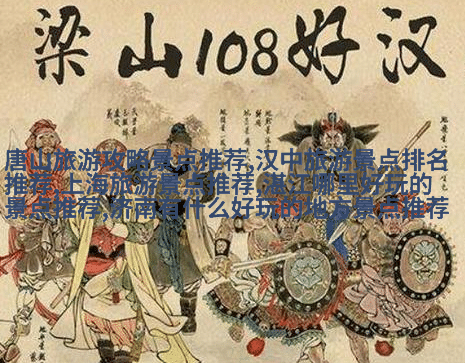 梁山108好汉
唐山旅游攻略景点推荐,汉中旅游景点排名
推荐,上海旅游景点推荐,湛江哪里好玩的
景点推荐,济南有什么好玩的地方景点推荐